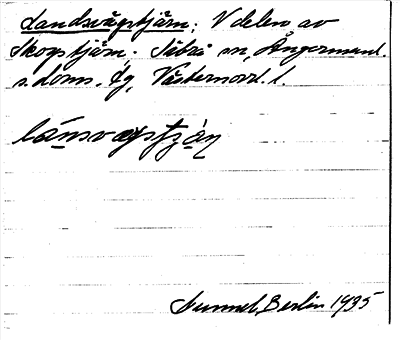 Landsvägstjärn; V delen av
Skogstjärn; Sibrå sn, Ångermanl.
s. doms. tg, Västernorrl. l.
lánsvægstján
Berlin 1935